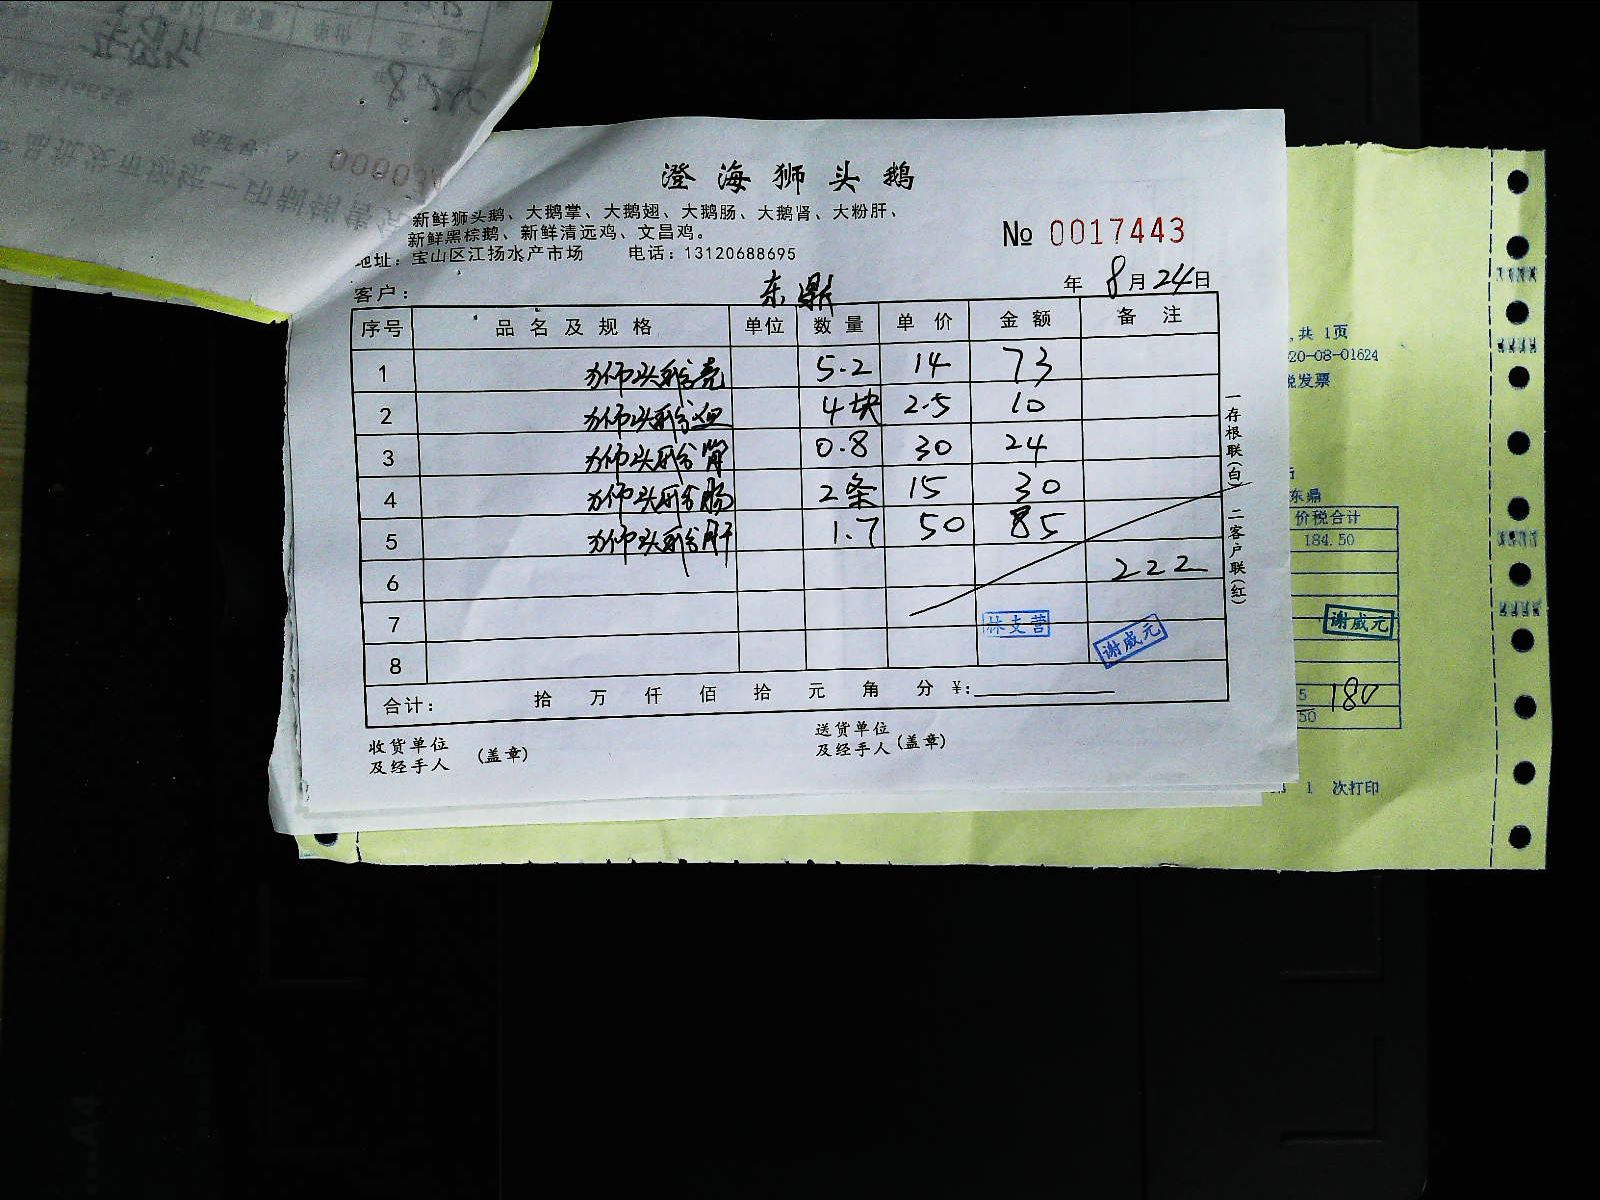 澄海狮头鹅
新鲜狮头鹅、大鹅掌、大鹅翅、大鹅肠、大鹅肾、大粉肝、
新鲜黑棕鹅、新鲜清远鸡、文昌鸡。
地址：宝山区江扬水产市场 电话：13120688695
№ 0017443
客户： 东鼎 年 8月24日
序号 品名及规格 单位 数量 单价 金额 备注
1 狮头鹅壳 5.2 14 73
2 狮头鹅 4块 2.5 10
3 狮头鹅肾 0.8 30 24
4 狮头鹅肠 2条 15 30
5 狮头鹅肝 1.7 50 85
6 222
7 林支营
8 谢威元
合计： 拾 万 仟 佰 拾 元 角 分 ¥:
收货单位及经手人 (盖章)
送货单位及经手人 (盖章)
一存根联(白) 二客户联(红)
,共 1页
20-08-01624
税发票
东鼎
价税合计
184.50
谢威元
5 180
50
1 次打印